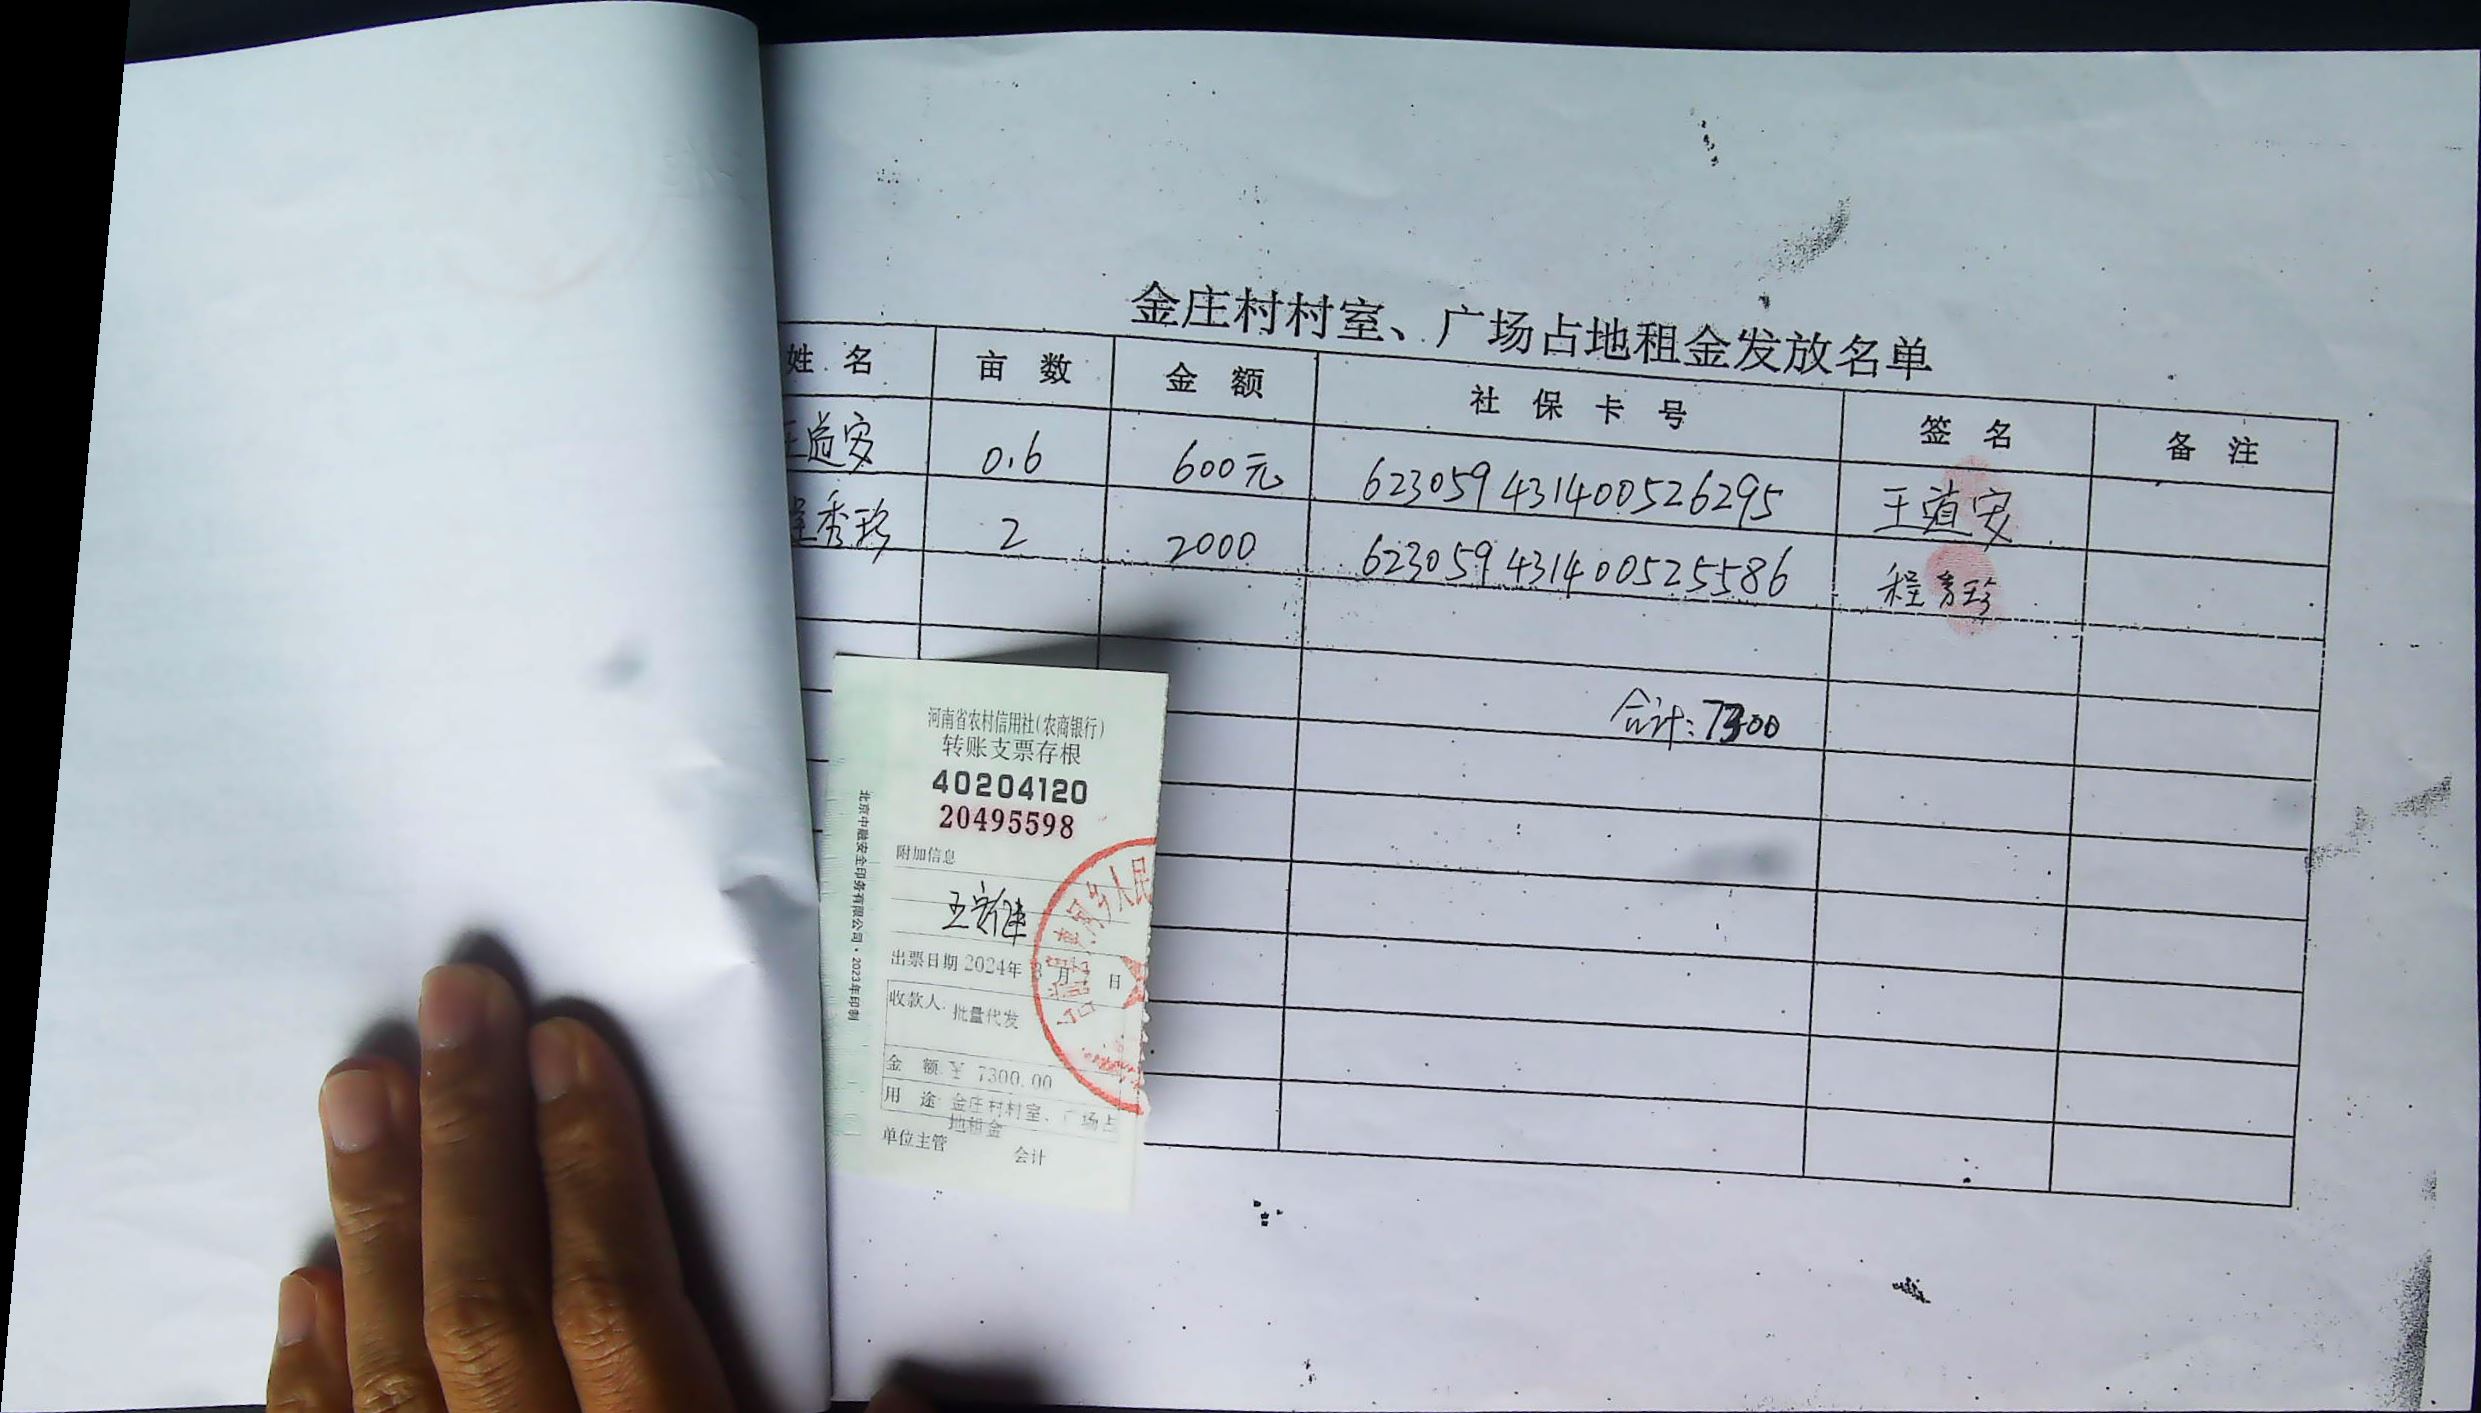 金庄村村室、广场占地租金发放名单
姓名 亩数 金额 社保卡号 签名 备注
王道安 0.6 600元 623059431400526295 王道安
程秀珍 2 2000 623059431400525586 程秀珍
合计:7300
河南省农村信用社(农商银行)
转账支票存根
40204120
20495598
附加信息
出票日期 2024年 月 日
收款人 批量代发
金额 ¥ 7300.00
用途 金庄村村室、广场占
地租金
单位主管 会计
北京中融安全印务有限公司·2023年印制
乡人民